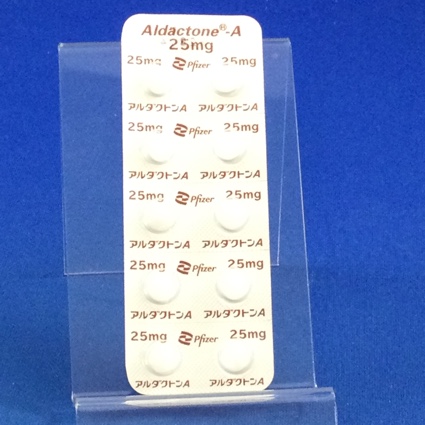 Aldactone®-A
25mg
25mg Pfizer 25mg
アルダクトンA アルダクトンA
25mg Pfizer 25mg
アルダクトンA アルダクトンA
25mg Pfizer 25mg
アルダクトンA アルダクトンA
25mg Pfizer 25mg
アルダクトンA アルダクトンA
25mg Pfizer 25mg
アルダクトンA アルダクトンA